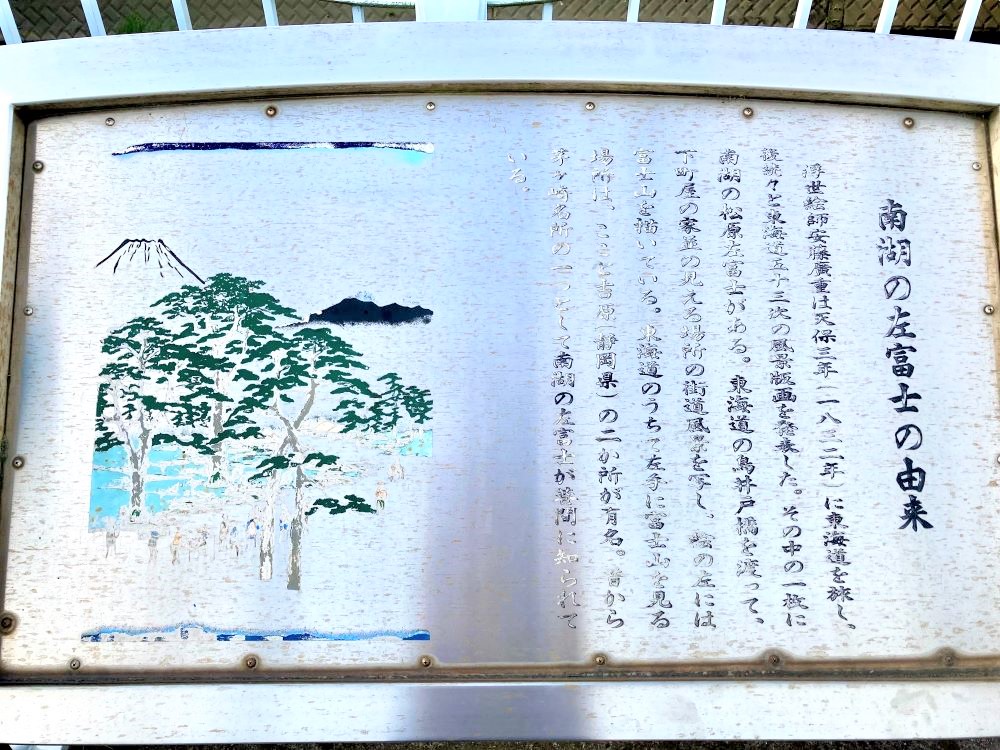 南湖の左富士の由来
浮世絵師安藤廣重は天保三年(一八三二年)に東海道を旅し、
後続々と東海道五十三次の風景版画を発表した。その中の一枚に
南湖の松原左富士がある。東海道の鳥井戸橋を渡って、
下町屋の家並の見える場所の街道風景を写し、絵の左には
富士山を描いている。東海道のうちで左手に富士山を見る
場所は、ここと吉原(静岡県)の二か所が有名。昔から
茅ヶ崎名所の一つとして南湖の左富士が世間に知られて
いる。